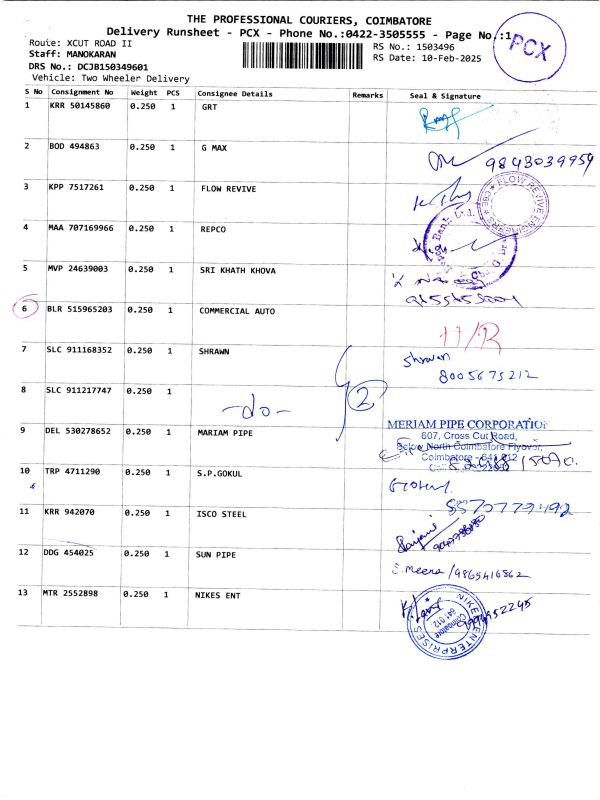 THE PROFESSIONAL COURIERS, COIMBATORE
Delivery Runsheet - PCX - Phone No.:0422-3505555 - Page No.:1
PCX
Route: XCUT ROAD II
RS No.: 1503496
Staff: MANOKARAN
RS Date: 10-Feb-2025
DRS No.: DCJB150349601
Vehicle: Two Wheeler Delivery
S No Consignment No Weight PCS Consignee Details Remarks Seal & Signature
1 KRR 50145860 0.250 1 GRT
2 BOD 494863 0.250 1 G MAX
9843039959
3 KPP 7517261 0.250 1 FLOW REVIVE
FLOW REVIVE ENGINEERS ★ CBE ★
4 MAA 707169966 0.250 1 REPCO
5 MVP 24639003 0.250 1 SRI KHATH KHOVA
6 BLR 515965203 0.250 1 COMMERCIAL AUTO
7 SLC 911168352 0.250 1 SHRAWN
Shravan
8005675212
8 SLC 911217747 0.250 1
-do-
2
9 DEL 530278652 0.250 1 MARIAM PIPE
MERIAM PIPE CORPORATION
607, Cross Cut Road,
Below North Coimbatore Flyover,
Coimbatore - 641 012
10 TRP 4711290 0.250 1 S.P.GOKUL
11 KRR 942070 0.250 1 ISCO STEEL
12 DDG 454025 0.250 1 SUN PIPE
S.Meena /9865416862
13 MTR 2552898 0.250 1 NIKES ENT
NIKES ENTERPRISES
Coimbatore
641 012